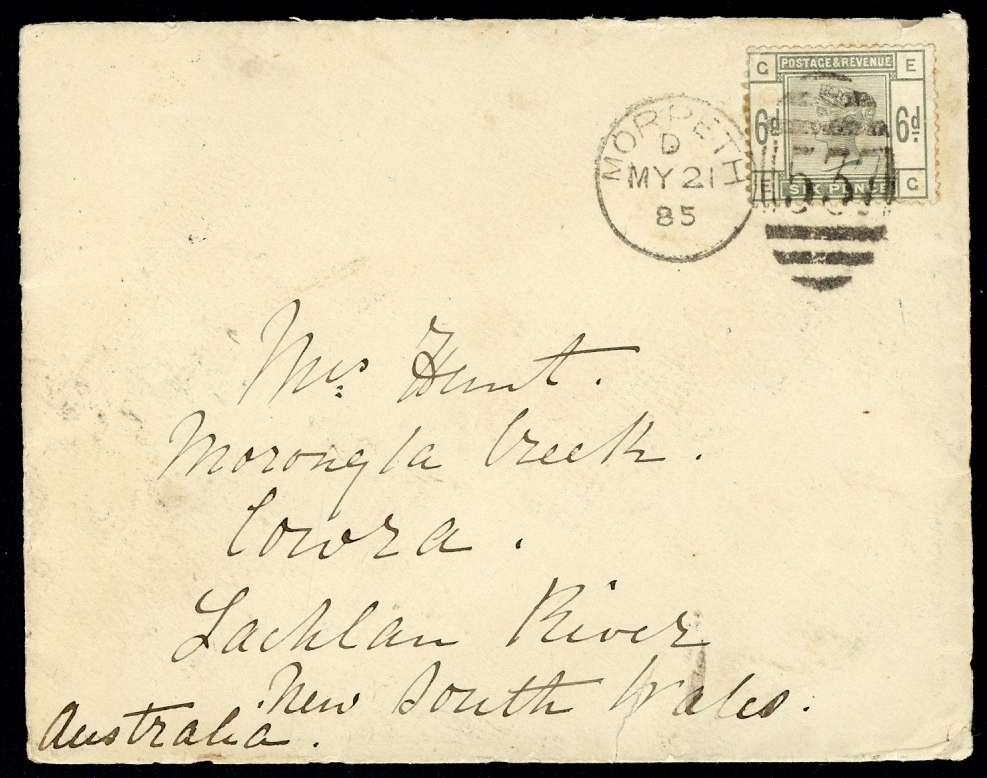 G POSTAGE & REVENUE E
6d. 6d.
E SIX PENCE G
MORPETH
D
MY 21
85
Mrs Hunt.
Morongla Creek.
Cowra.
Lachlan River
New South Wales.
Australia.